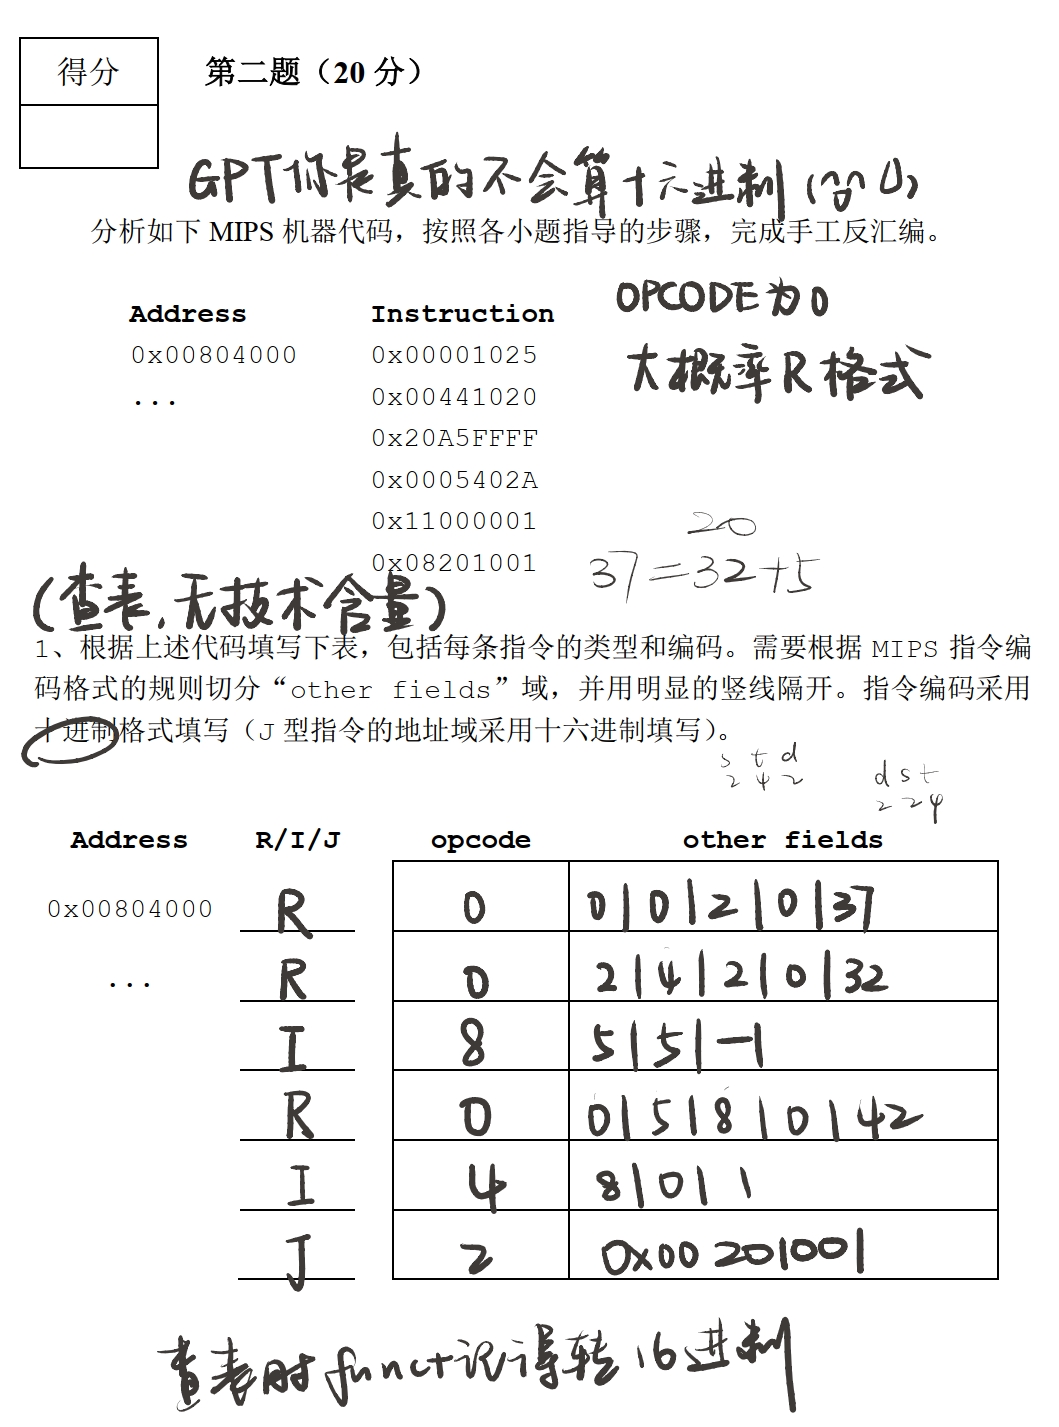 得分
第二题（20 分）
GPT你是真的不会算十六进制
分析如下 MIPS 机器代码，按照各小题指导的步骤，完成手工反汇编。
OPCODE为0
Address Instruction
大概率R格式
0x00804000 0x00001025
... 0x00441020
0x20A5FFFF
0x0005402A
0x11000001
20
0x08201001
37=32+5
(查表,无技术含量)
1、根据上述代码填写下表，包括每条指令的类型和编码。需要根据 MIPS 指令编
码格式的规则切分“other fields”域，并用明显的竖线隔开。指令编码采用
十进制格式填写（J 型指令的地址域采用十六进制填写）。
s t d
2 4 2
d s t
2 2 4
Address R/I/J opcode other fields
0x00804000 R 0 0|0|2|0|37
... R 0 2|4|2|0|32
I 8 5|5|-1
R 0 0|5|8|0|42
I 4 8|0|1
J 2 0x00201001
查表时funct记得转16进制